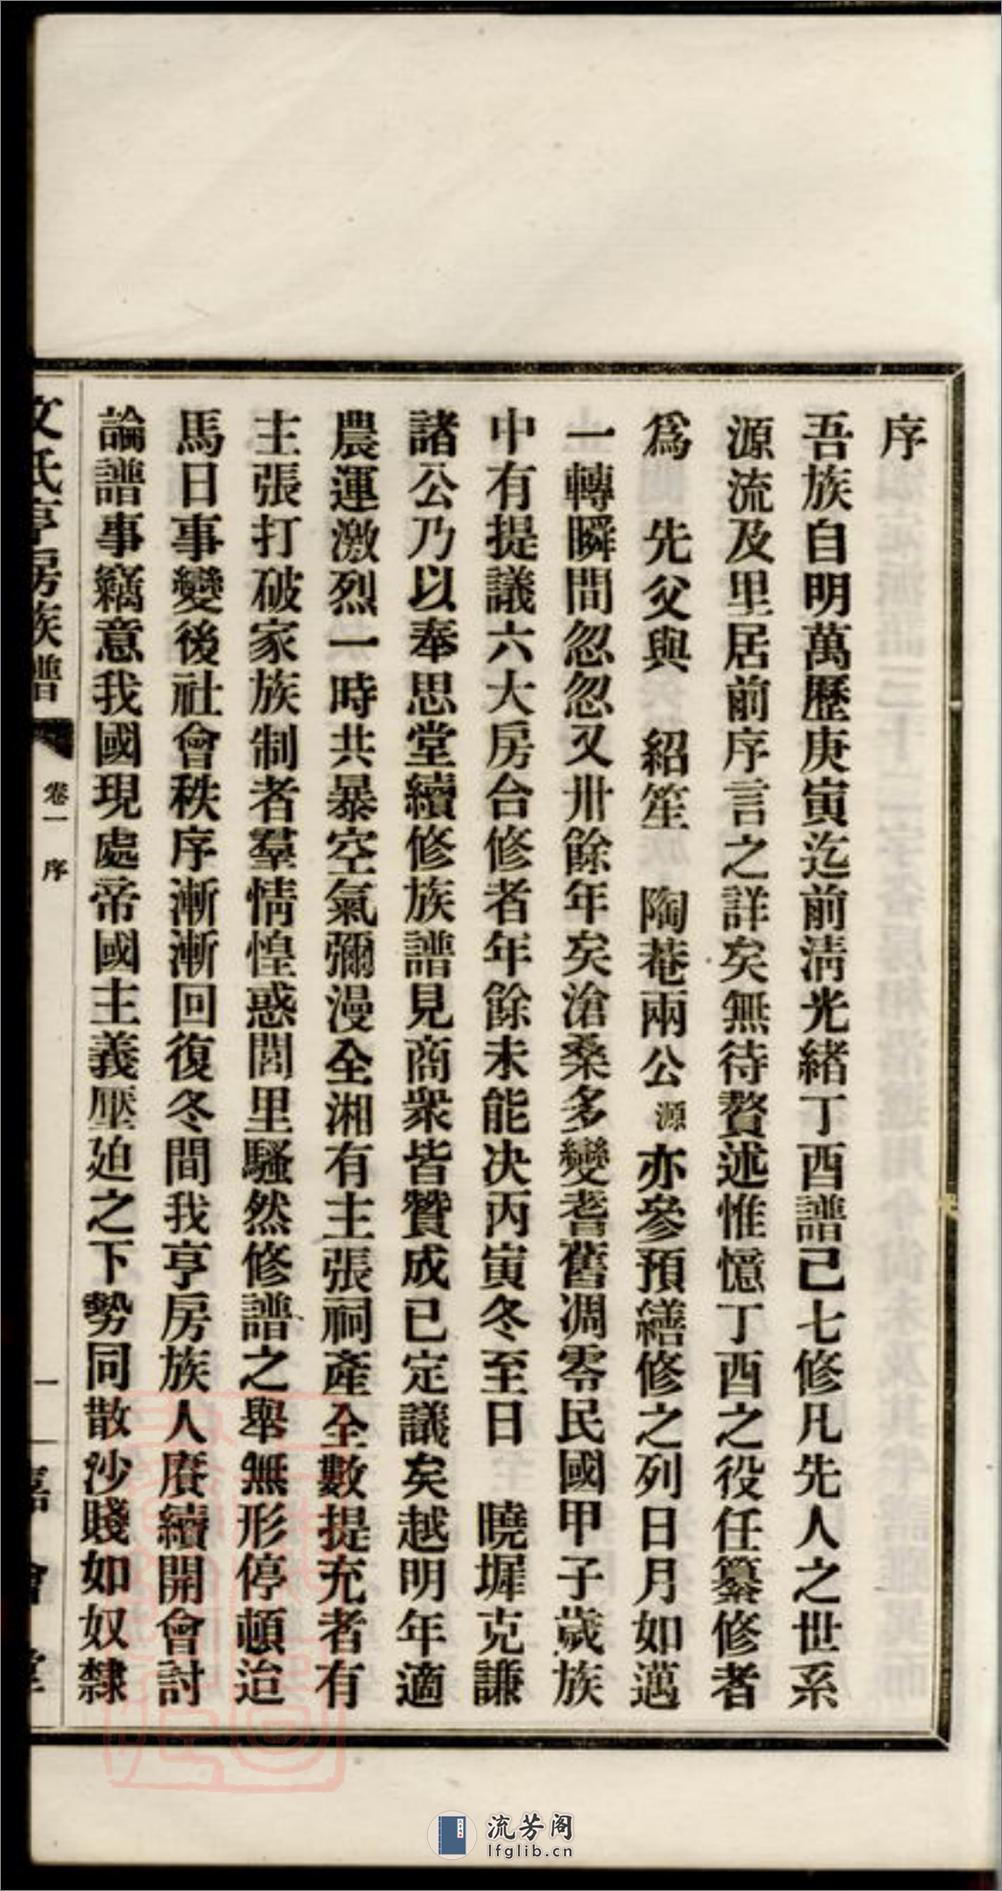 序
吾族自明萬歷庚寅迄前清光緒丁酉譜己七修凡先人之世系
源流及里居前序言之詳矣無待贅述惟憶丁酉之役任纂修者
爲　先父與　紹笙　陶菴兩公源亦參預繕修之列日月如邁
一轉瞬間忽忽又卅餘年矣滄桑多變耆舊凋零民國甲子歲族
中有提議六大房合修者年餘未能決丙寅冬至日　曉墀克謙
諸公乃以奉思堂續修族譜見商衆皆贊成已定議矣越明年適
農運激烈一時共暴空氣彌漫全湘有主張祠產全數提充者有
主張打破家族制者羣情惶惑閭里騷然修譜之舉無形停頓迨
馬日事變後社會秩序漸漸回復冬間我亨房族人賡續開會討
論譜事竊意我國現處帝國主義壓廹之下勢同散沙賤如奴隸
文氏亨房族譜
卷一　序
一
嘉會堂
流芳阁
lfglib.cn